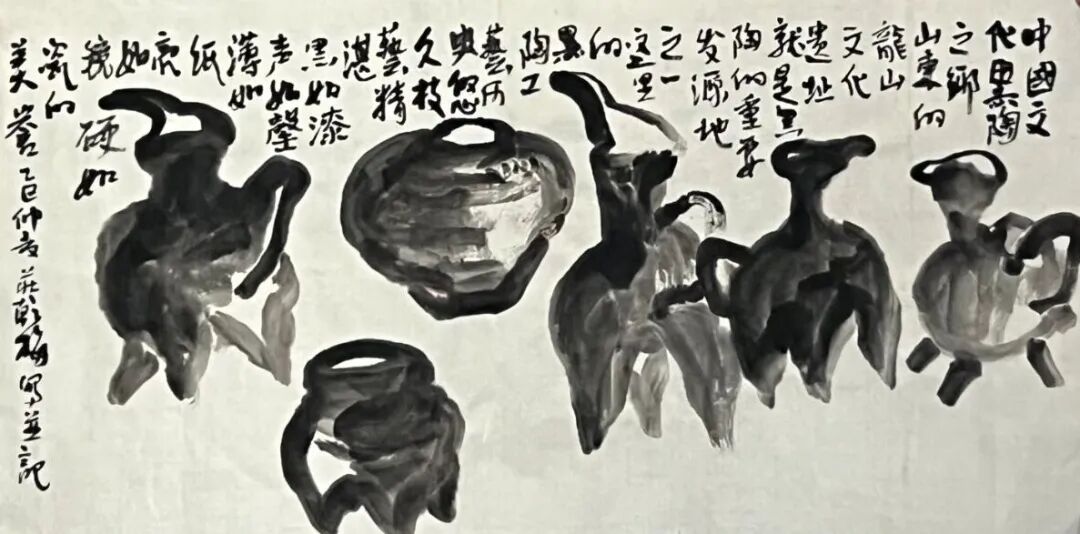 中國文
代黑陶
之鄉
山東的
龍山
文化
遗址
就是黑
陶的重要
发源地
之一
这里
的
黑
陶工
藝历
史悠
久技
藝精
湛
黑如漆
声如磬
薄如
纸
亮
如
镜硬如
瓷的
美誉
乙巳仲夏莊乾梅寫並記